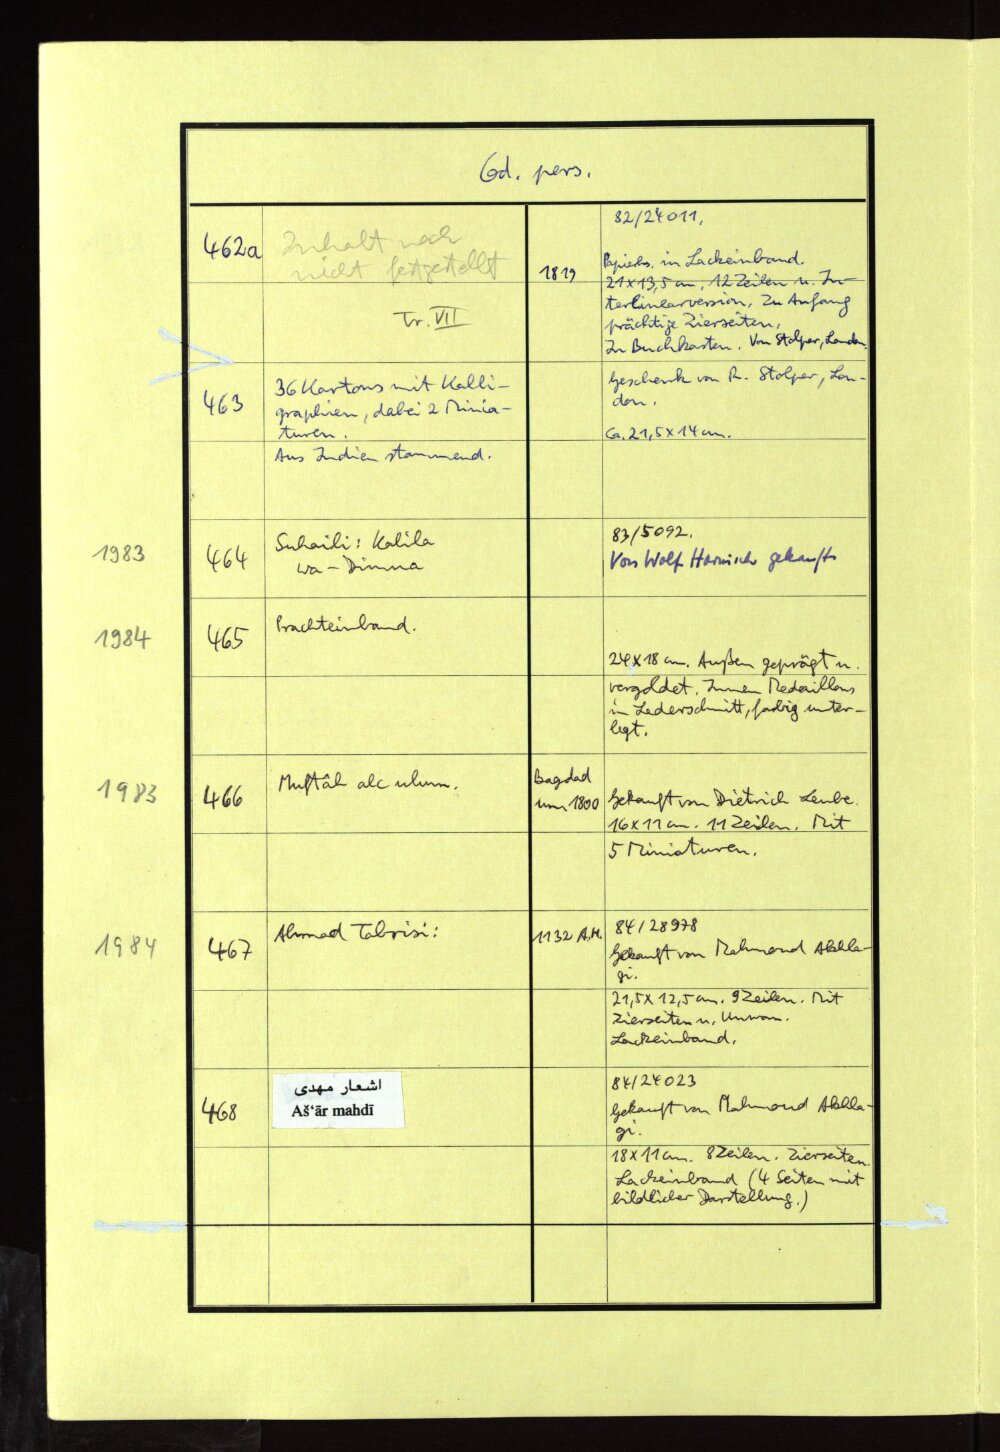 Cod. pers.
462a
Inhalt noch
nicht festgestellt
Tr. VII
1819
82/24011.
Papierhs. in Lackeinband.
21x13,5 cm, 12 Zeilen u. In-
terlinearversion. Zu Anfang
prächtige Zierseiten.
In Buchkasten. Von Stolper, London.
463
36 Kartons mit Kalli-
graphien, dabei 2 Minia-
turen.
Aus Indien stammend.
Geschenk von R. Stolper, Lon-
don.
Ca. 21,5x14 cm.
1983
464
Suhaili: Kalila
wa-Dimna
83/5092.
Von Wolf Harnisch gekauft
1984
465
Prachteinband.
24x18 cm. Außen geprägt u.
vergoldet. Innen Medaillons
in Lederschnitt, farbig unter-
legt.
1983
466
Muftâh alc ulum.
Bagdad
um 1800
Gekauft von Dietrich Leube.
16x11 cm. 11 Zeilen. Mit
5 Miniaturen.
1984
467
Ahmad Tabrisi:
1132 A.H.
84/28978
Gekauft von Mahmoud Akhla-
gi.
21,5x12,5 cm. 9 Zeilen. Mit
Zierseiten u. Unwan.
Lackeinband.
468
اشعار مهدى
Aš‘ār mahdī
84/24023
Gekauft von Mahmoud Akhla-
gi.
18x11 cm. 8 Zeilen. Zierseiten.
Lackeinband (4 Seiten mit
bildlicher Darstellung.)